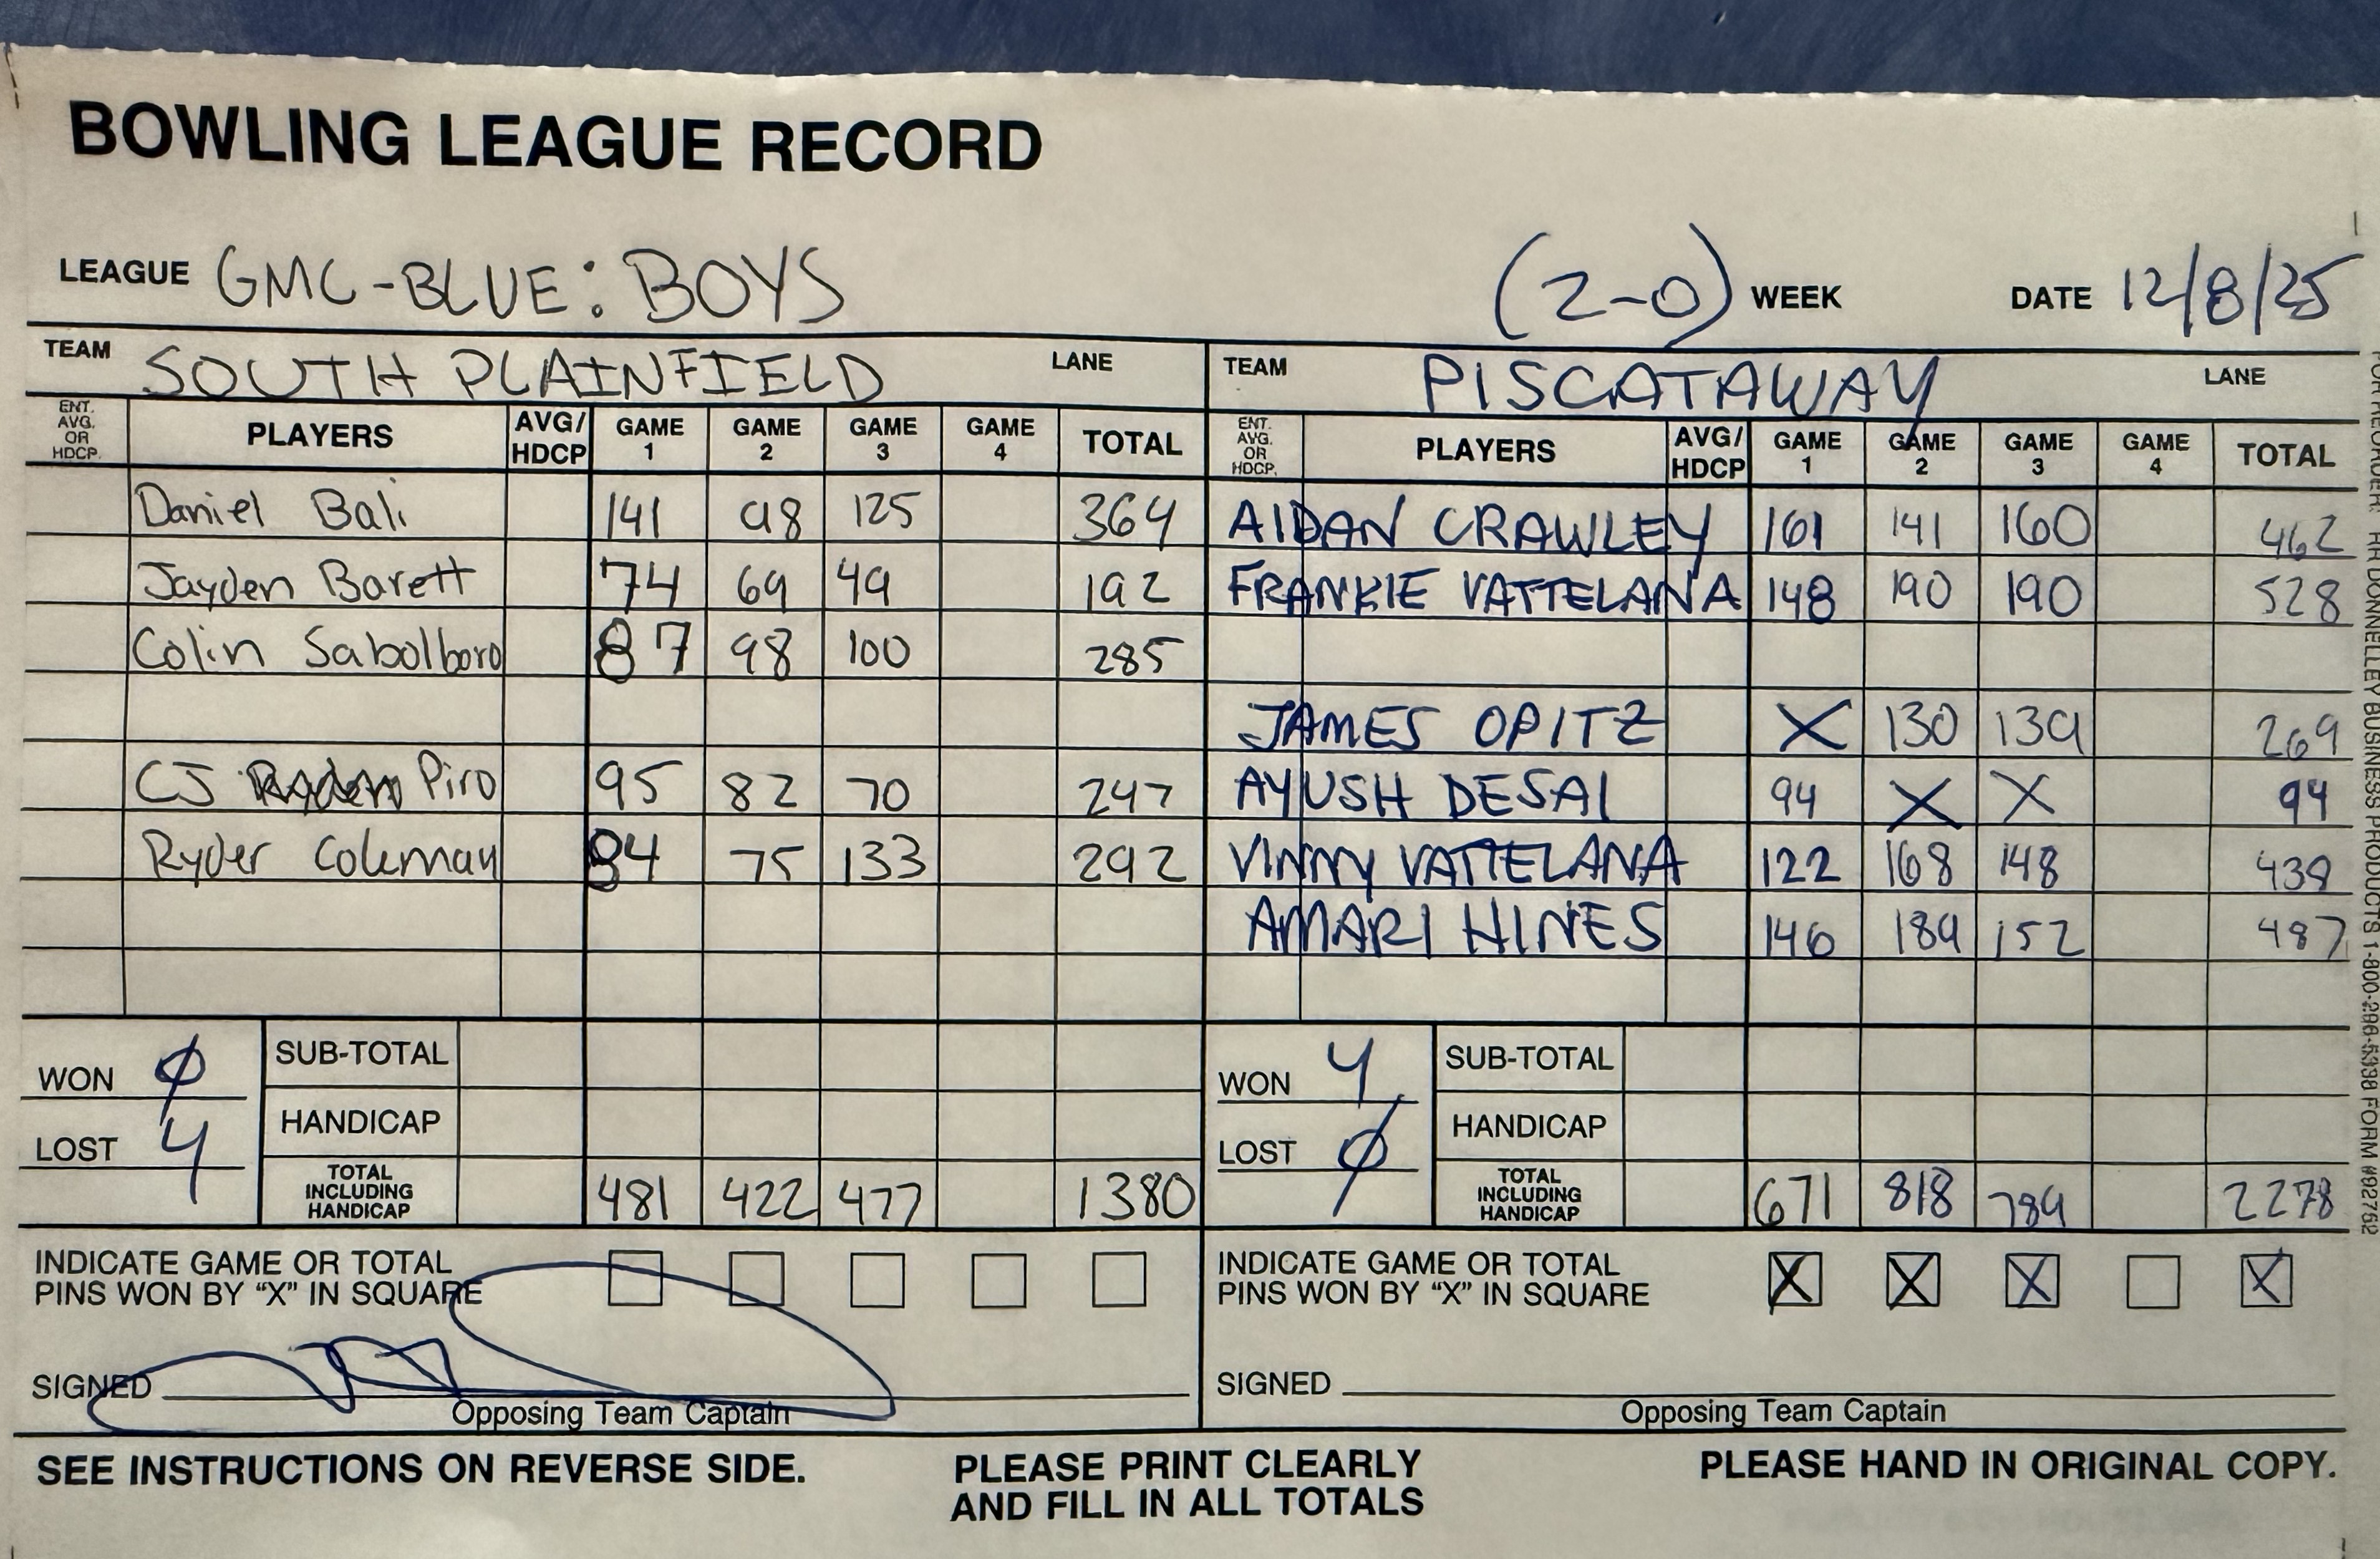 BOWLING LEAGUE RECORD
LEAGUE GMC-BLUE: BOYS (2-0) WEEK DATE 12/8/25
TEAM SOUTH PLAINFIELD LANE TEAM PISCATAWAY LANE
ENT. AVG. OR HDCP. PLAYERS AVG/HDCP GAME 1 GAME 2 GAME 3 GAME 4 TOTAL ENT. AVG. OR HDCP. PLAYERS AVG/HDCP GAME 1 GAME 2 GAME 3 GAME 4 TOTAL
Daniel Bali 141 98 125 364 AIDAN CRAWLEY 161 141 160 462
Jayden Barett 74 69 49 192 FRANKIE VATTELANA 148 190 190 528
Colin Sabolboro 87 98 100 285
JAMES OPITZ X 130 139 269
CJ Piro 95 82 70 247 AYUSH DESAI 94 X X 94
Ryder Coleman 84 75 133 292 VINNY VATTELANA 122 168 148 438
AMARI HINES 146 189 152 487
WON 0 SUB-TOTAL WON 4 SUB-TOTAL
LOST 4 HANDICAP LOST 0 HANDICAP
TOTAL INCLUDING HANDICAP 481 422 477 1380 TOTAL INCLUDING HANDICAP 671 818 789 2278
INDICATE GAME OR TOTAL INDICATE GAME OR TOTAL
PINS WON BY "X" IN SQUARE PINS WON BY "X" IN SQUARE X X X X
SIGNED SIGNED
Opposing Team Captain Opposing Team Captain
SEE INSTRUCTIONS ON REVERSE SIDE. PLEASE PRINT CLEARLY PLEASE HAND IN ORIGINAL COPY.
AND FILL IN ALL TOTALS